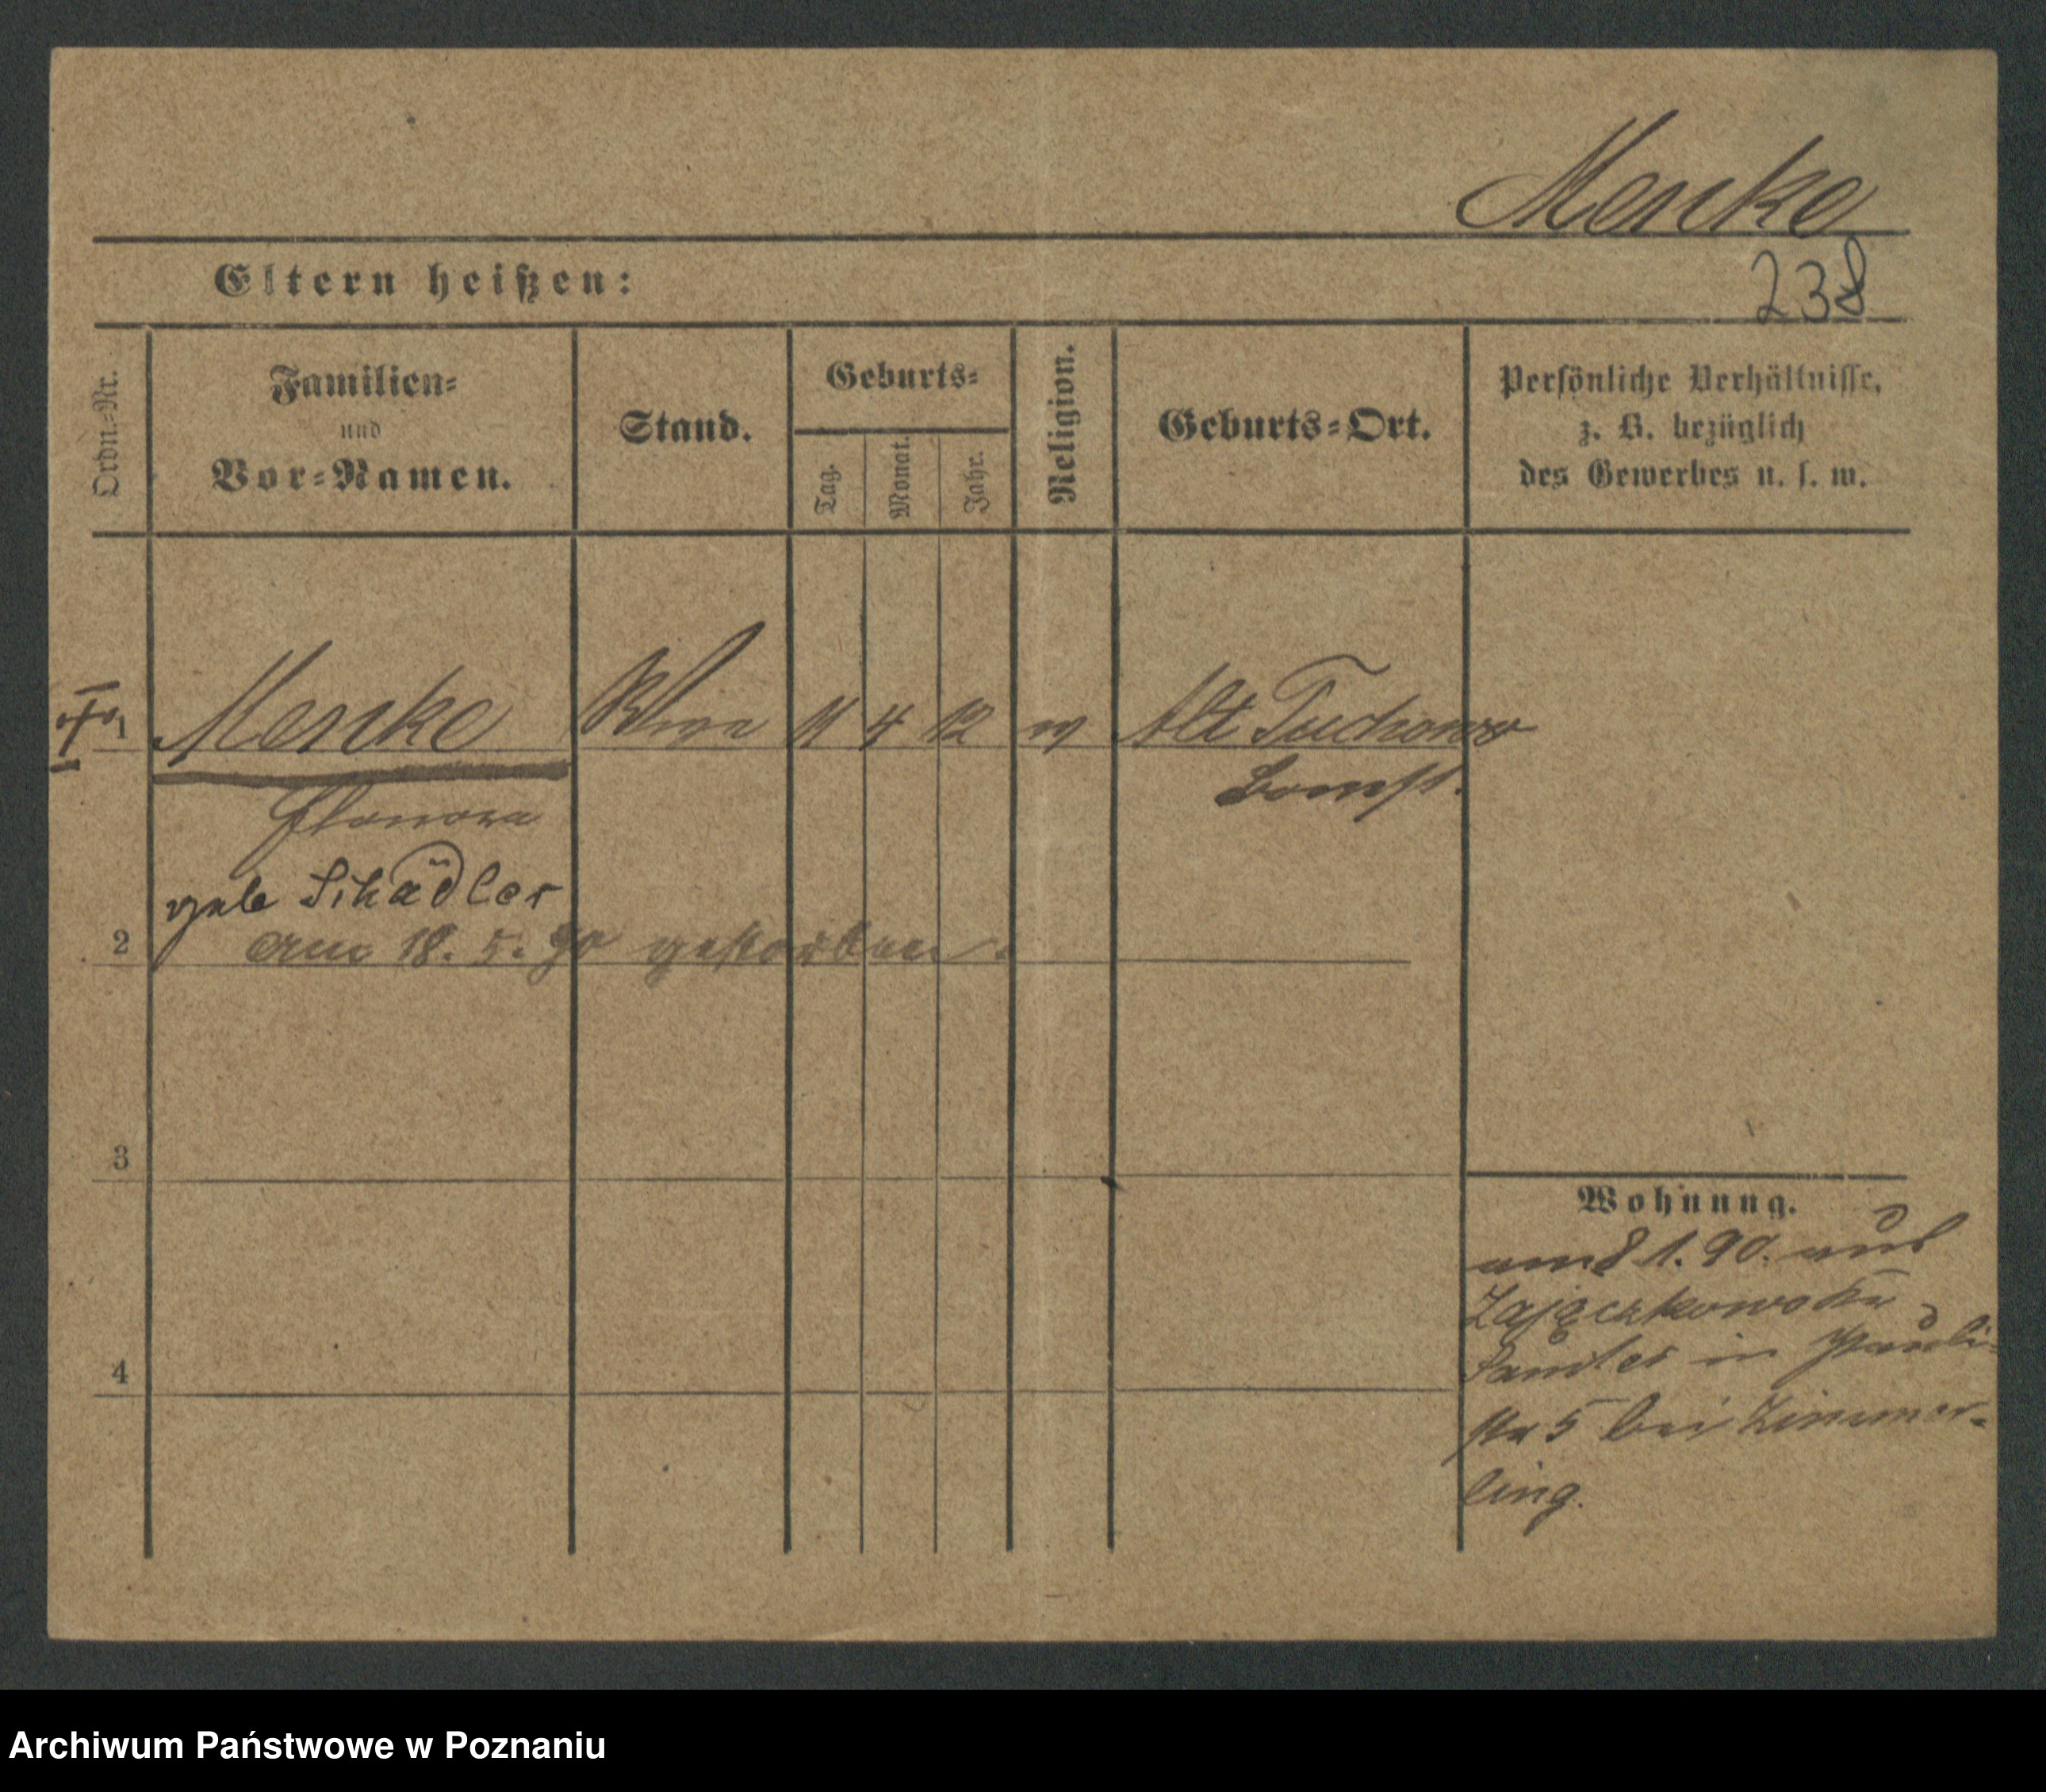 Menke
238
Eltern heißen:
Ordn.-Nr.
Familien-
und
Vor-Namen.
Stand.
Geburts-
Tag.
Monat.
Jahr.
Religion.
Geburts-Ort.
Persönliche Verhältnisse,
z. B. bezüglich
des Gewerbes u. s. w.
1 Menke Wwe 11 4 12 Alt Tuchorze
Bomst.
geb Schädler
2 am 18. 5. 90 gestorben.
3
4
Wohnung.
am 8 1. 90. aus
Zajączkowo Kr
Samter in Pauli-
str 5 bei Zimmer-
ling.
Archiwum Państwowe w Poznaniu